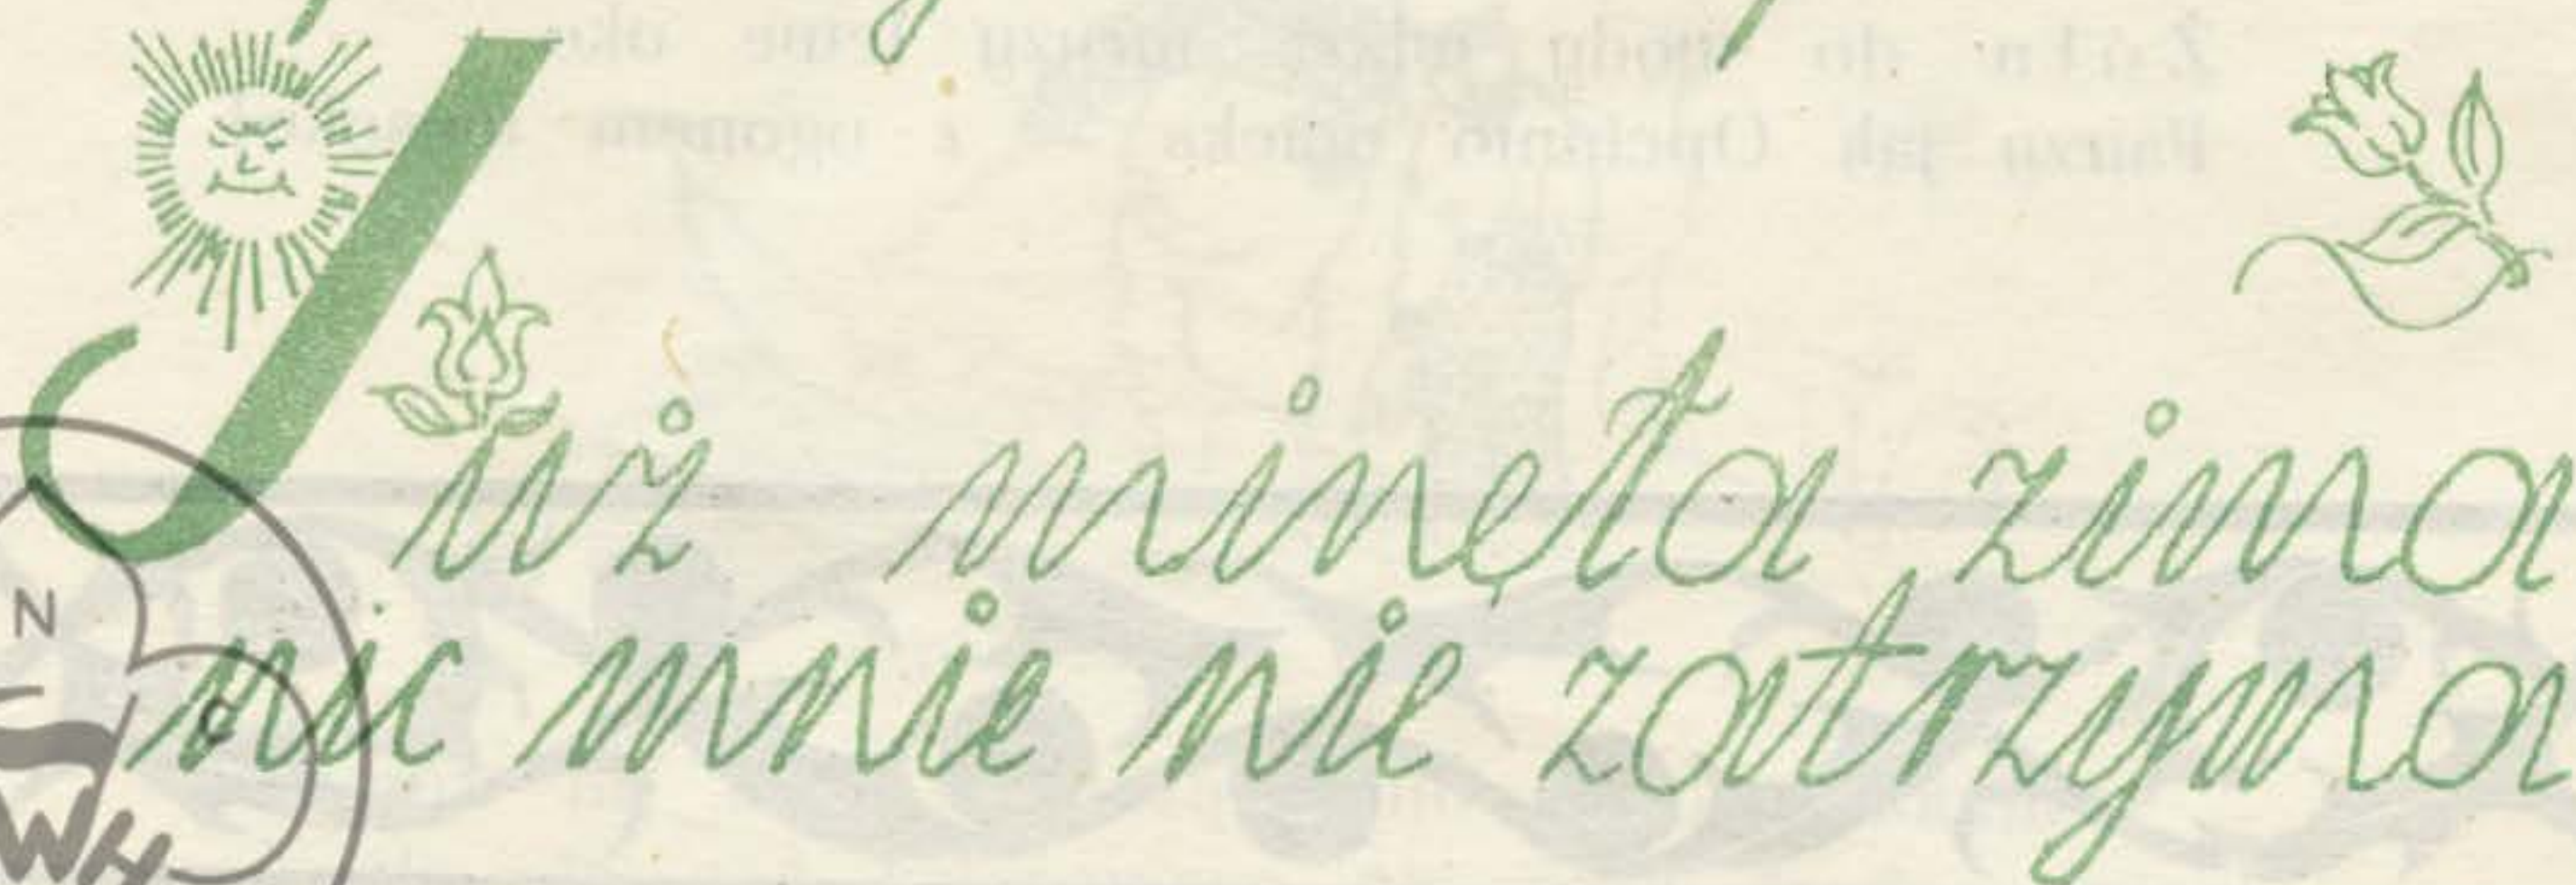 Już minęła zima
nic mnie nie zatrzyma
N
C
WH